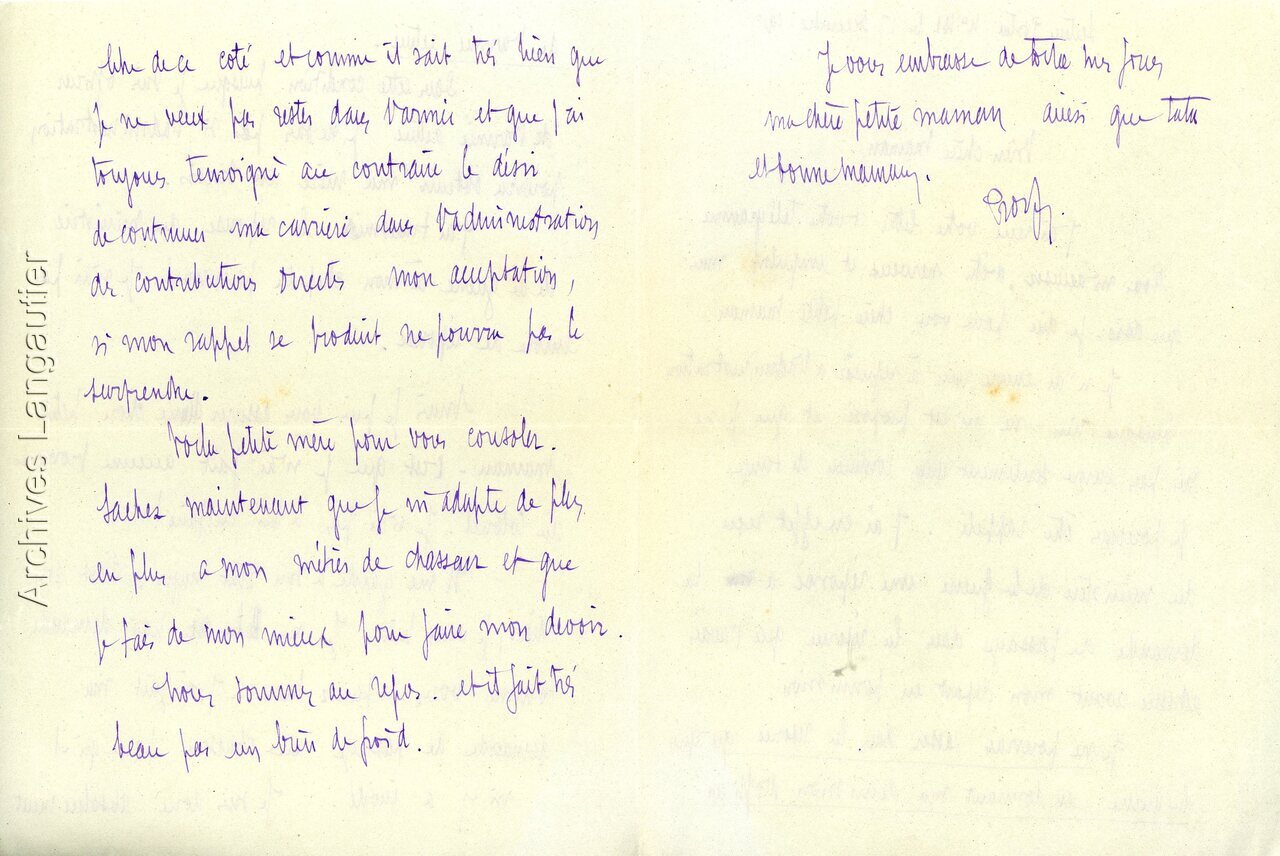 libre de ce coté et comme il sait très bien que
je ne veux pas rester dans l'armée et que j'ai
toujours temoigné au contraire le désir
de continuer ma carrière dans l'administration
des contributions directes mon acceptation,
si mon rappel se produit ne pourra pas le
surprendre.
Voila petite mère pour vous consoler.
Sachez maintenant que je m'adapte de plus
en plus a mon métier de chasseur et que
je fais de mon mieux pour faire mon devoir.
Nous sommes au repos. et il fait très
beau pas un brin de froid.
Je vous embrasse de sur les joues
ma chère petite maman ainsi que tata
et bonne maman.
Archives Langautier